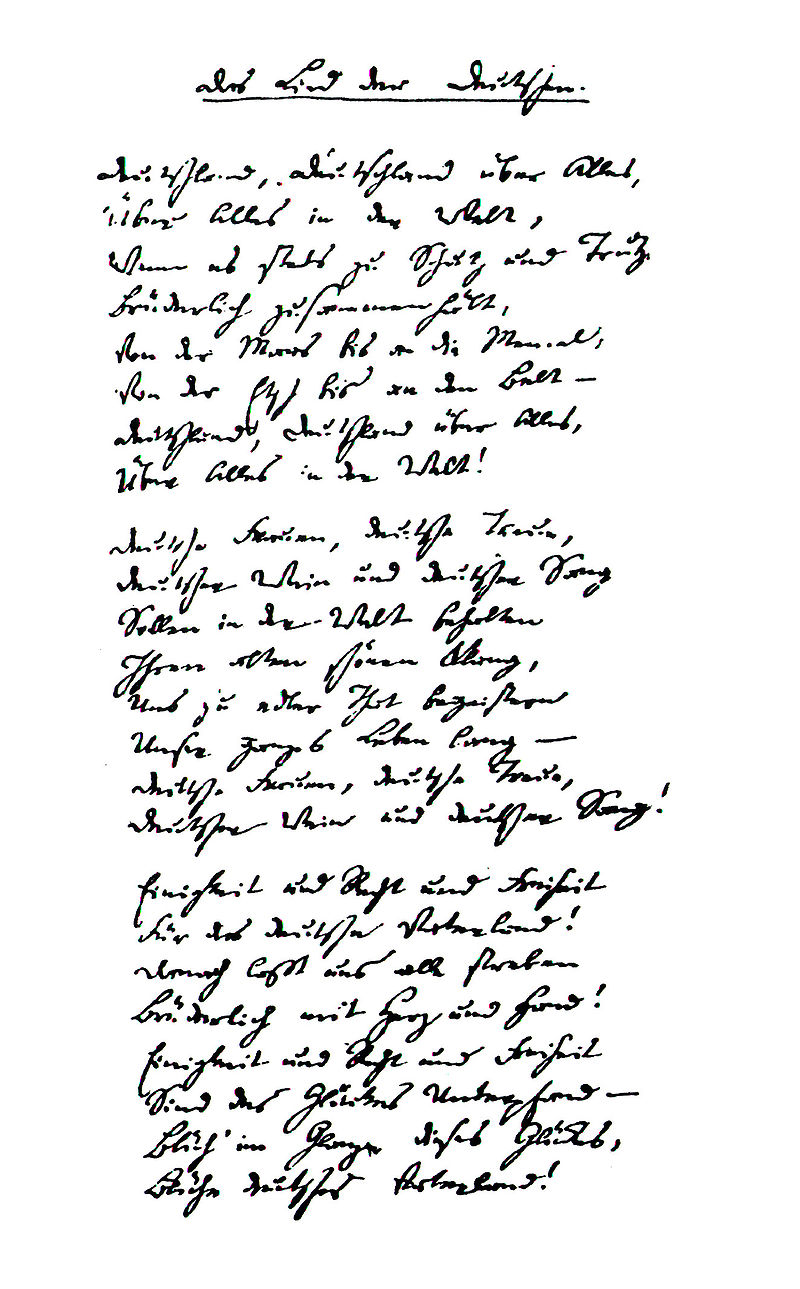 Das Lied der Deutschen.
Deutschland, Deutschland über Alles,
Über Alles in der Welt,
Wenn es stets zu Schutz und Trutze
Brüderlich zusammenhält,
Von der Maas bis an die Memel,
Von der Etsch bis an den Belt –
Deutschland, Deutschland über Alles,
Über Alles in der Welt!
Deutsche Frauen, deutsche Treue,
Deutscher Wein und deutscher Sang
Sollen in der Welt behalten
Ihren alten schönen Klang,
Uns zu edler That begeistern
Unser ganzes Leben lang –
Deutsche Frauen, deutsche Treue,
Deutscher Wein und deutscher Sang!
Einigkeit und Recht und Freiheit
Für das deutsche Vaterland!
Danach lasst uns alle streben
Brüderlich mit Herz und Hand!
Einigkeit und Recht und Freiheit
Sind des Glückes Unterpfand –
Blüh' im Glanze dieses Glückes,
Blühe deutsches Vaterland!